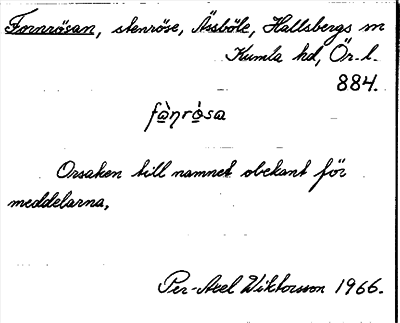 Fornrösan, stenröse, Åssböle, Hallsbergs sn
Kumla hd, Ör. l.
884.
fànrósa
Orsaken till namnet obekant för
meddelarna,
Per-Axel Wiktorsson 1966.